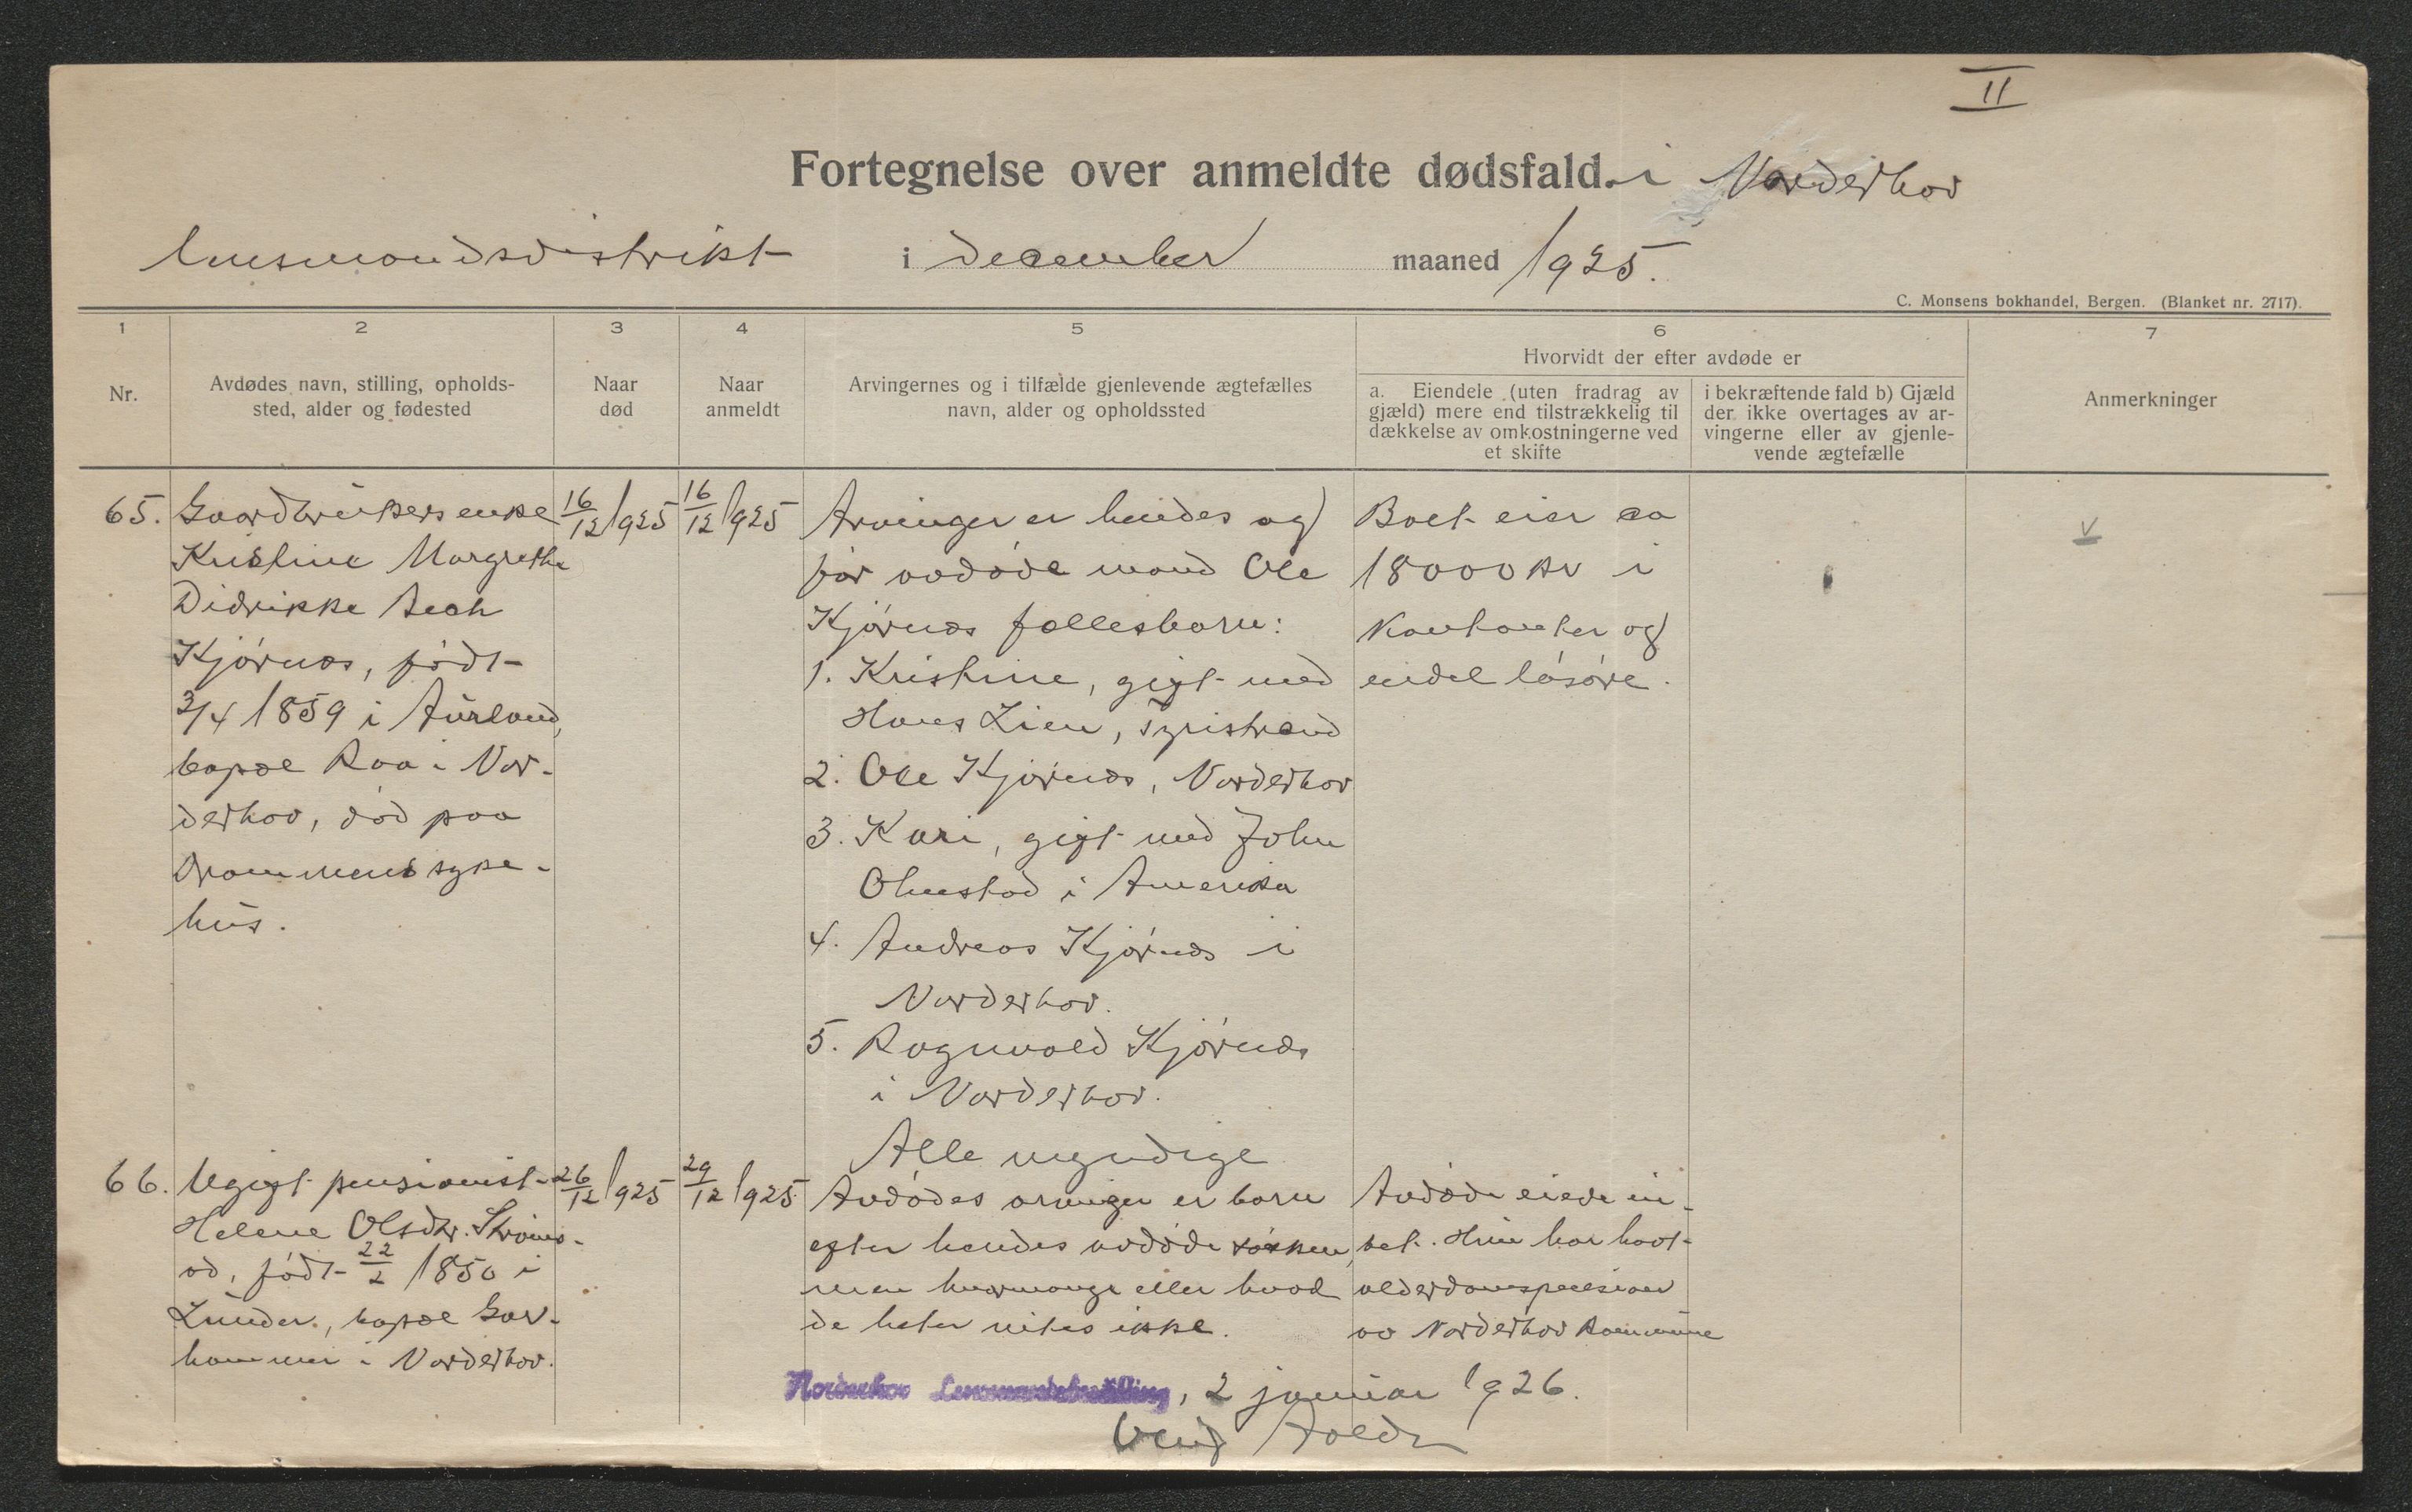 II
Fortegnelse over anmeldte dødsfald. i Norderhov
lensmandsdistrikt i december maaned 1925.
C. Monsens bokhandel, Bergen. (Blanket nr. 2717).
1 2 3 4 5 6 7
Nr.
Avdødes navn, stilling, opholds-
sted, alder og fødested
Naar
død
Naar
anmeldt
Arvingernes og i tilfælde gjenlevende ægtefælles
navn, alder og opholdssted
Hvorvidt der efter avdøde er
a. Eiendele (uten fradrag av
gjæld) mere end tilstrækkelig til
dækkelse av omkostningerne ved
et skifte
i bekræftende fald b) Gjæld
der ikke overtages av ar-
vingerne eller av gjenle-
vende ægtefælle
Anmerkninger
65.
Gaardbrukers enke
Kristine Margrethe
Didrikke
Kjørnæs, født
3/4 1859 i Aurland,
bopæl Raa i Nor-
derhov, død paa
Drammens syke-
hus.
16/12 1925
16/12 1925
Arvinger er hendes og
før avdøde mand Ole
Kjørnæs fællesbarn:
1. Kristine, gift med
Hans Lien, Tyristrand
2. Ole Kjørnæs, Norderhov
3. Kari, gift med John
Olmstad i Amerika
4. Andreas Kjørnæs i
Norderhov.
5. Ragnvald Kjørnæs
i Norderhov.
Alle myndige
Boet eier ca
18000 kr i
kontanter og
endel løsøre.
v
66.
Ugift pensionist
Helene Olsdtr. Strøms-
od, født 22/2 1850 i
Lunder, bopæl Gar-
hammer i Norderhov.
26/12 1925
29/12 1925
Avdødes arvinger er barn
efter hendes avdøde søsken,
men hvormange eller hvad
de heter vites ikke.
Avdøde eiede in-
tet. Hun har hat
alderdomspension
av Norderhov kommune
Norderhov Lensmandsbestilling, 2 januar 1926.